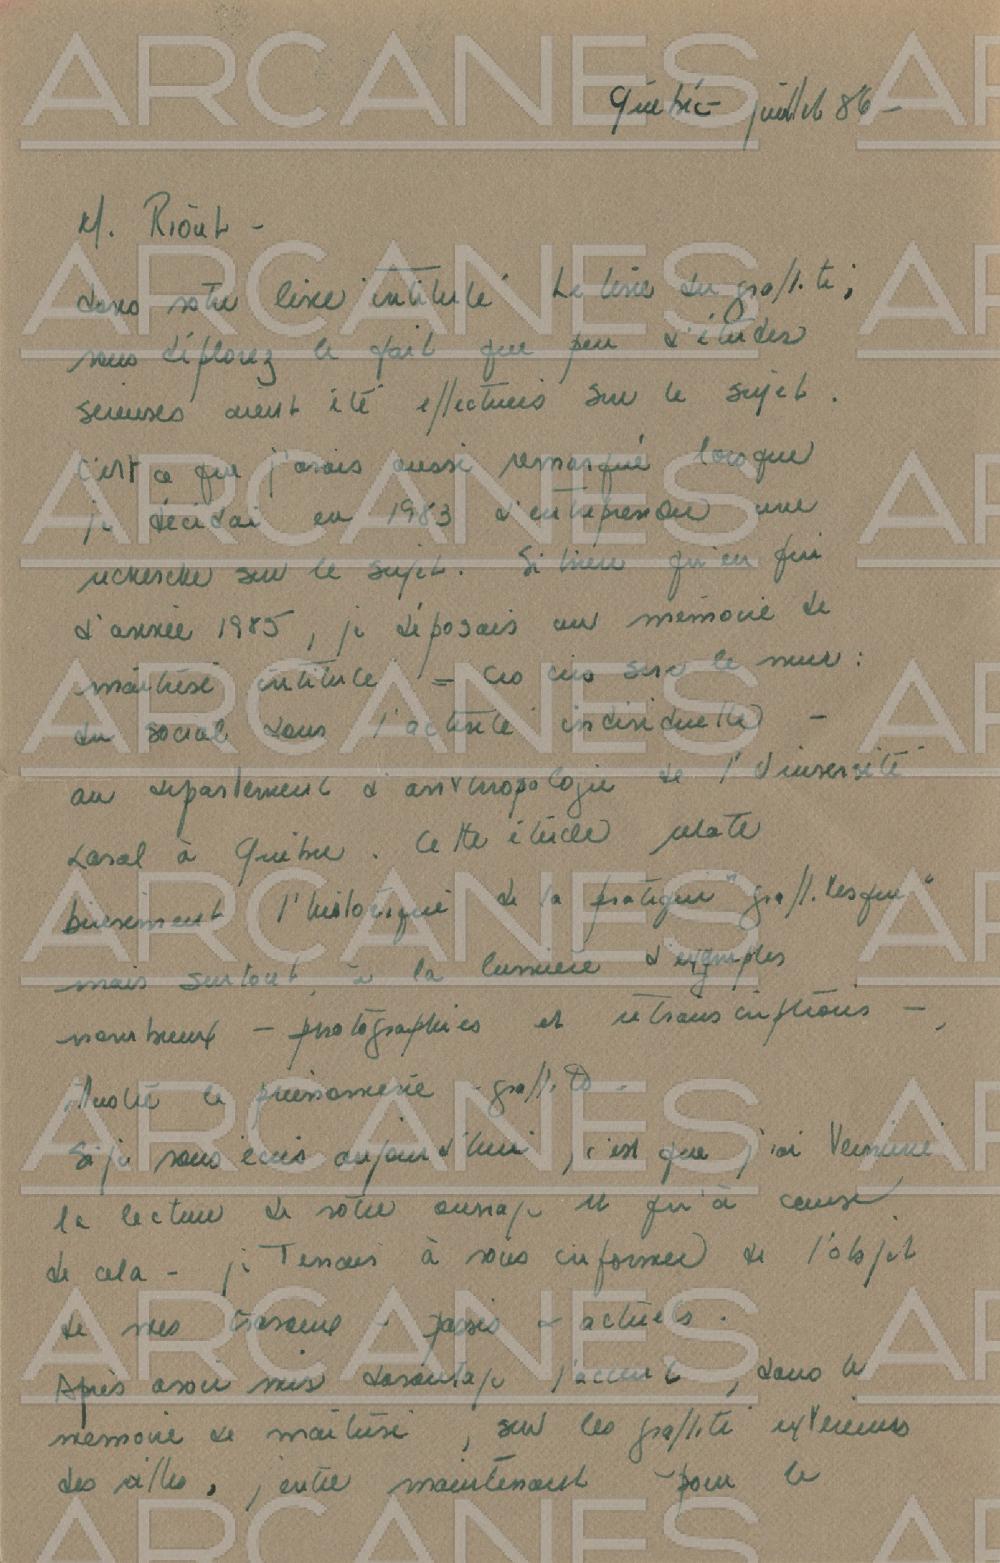 Québec juillet 86 -
M. Riout -
dans votre livre intitulé Le livre du graffiti,
vous déplorez le fait que peu d'études
sérieuses aient été effectuées sur le sujet.
C'est ce que j'avais aussi remarqué lorsque
je décidai en 1983 d'entreprendre une
recherche sur le sujet. Si bien qu'en fin
d'année 1985, je déposais un mémoire de
maîtrise intitulé - Ces cris sur le mur :
du social dans l'activité individuelle -
au département d'anthropologie de l'Université
Laval à Québec. Cette étude relate
brièvement l'historique de la pratique "graffitesque"
mais surtout, à la lumière d'exemples
nombreux - photographies et retranscriptions -,
illustre le phénomène - graffito -
Si je vous écris aujourd'hui, c'est que j'ai terminé
la lecture de votre ouvrage et qu'à cause
de cela - je tenais à vous informer de l'objet
de mes travaux - passés - actuels.
Après avoir mis davantage l'accent, dans le
mémoire de maîtrise, sur les graffiti extérieurs
des villes, j'entre maintenant - pour le
ARCANES